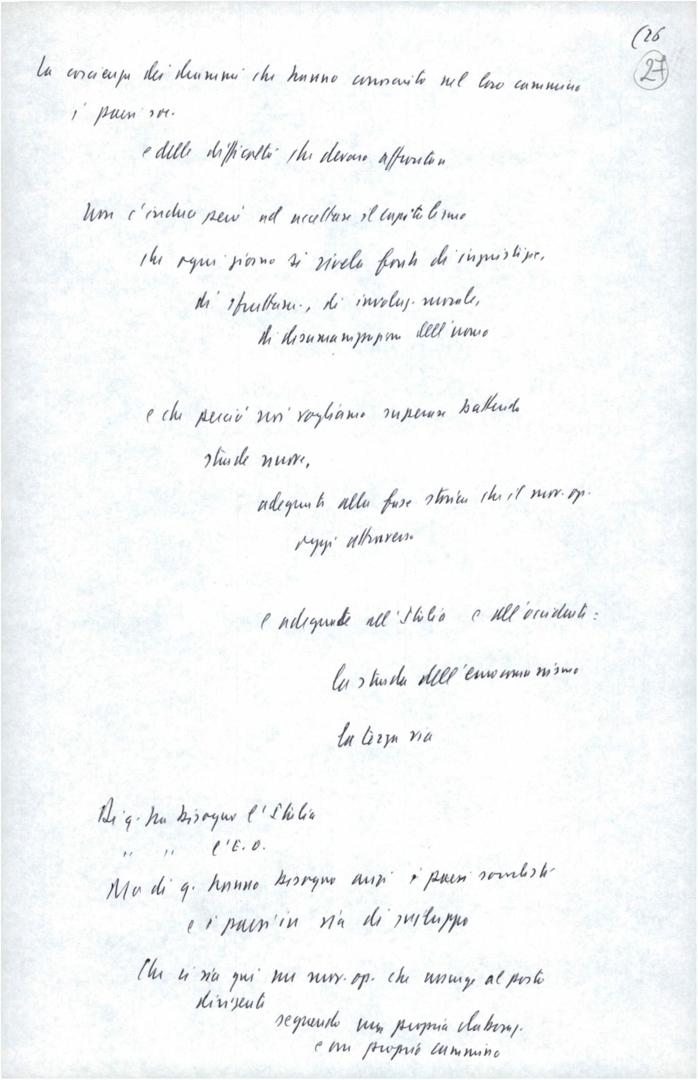 (26
27
La coscienza dei drammi che hanno conosciuto nel loro cammino
i paesi soc.
e delle difficoltà che devono affrontare
Non c'induce però ad accettare il capitalismo
che ogni giorno si rivela fonte di ingiustizie,
di sfruttam., di involuz. morale,
di disumanizzazione dell'uomo
e che perciò noi vogliamo superare battendo
strade nuove,
adeguate alla fase storica che il mov. op.
oggi attraversa
e adeguate all'Italia e all'occidente:
la strada dell'eurocomunismo
la terza via
Di q. ha bisogno l'Italia
" " l'E.O.
Ma di q. hanno bisogno anzi i paesi socialisti
e i paesi in via di sviluppo
Che ci sia qui un mov. op. che assurge al posto
dirigente
seguendo una propria elaboraz.
e un proprio cammino